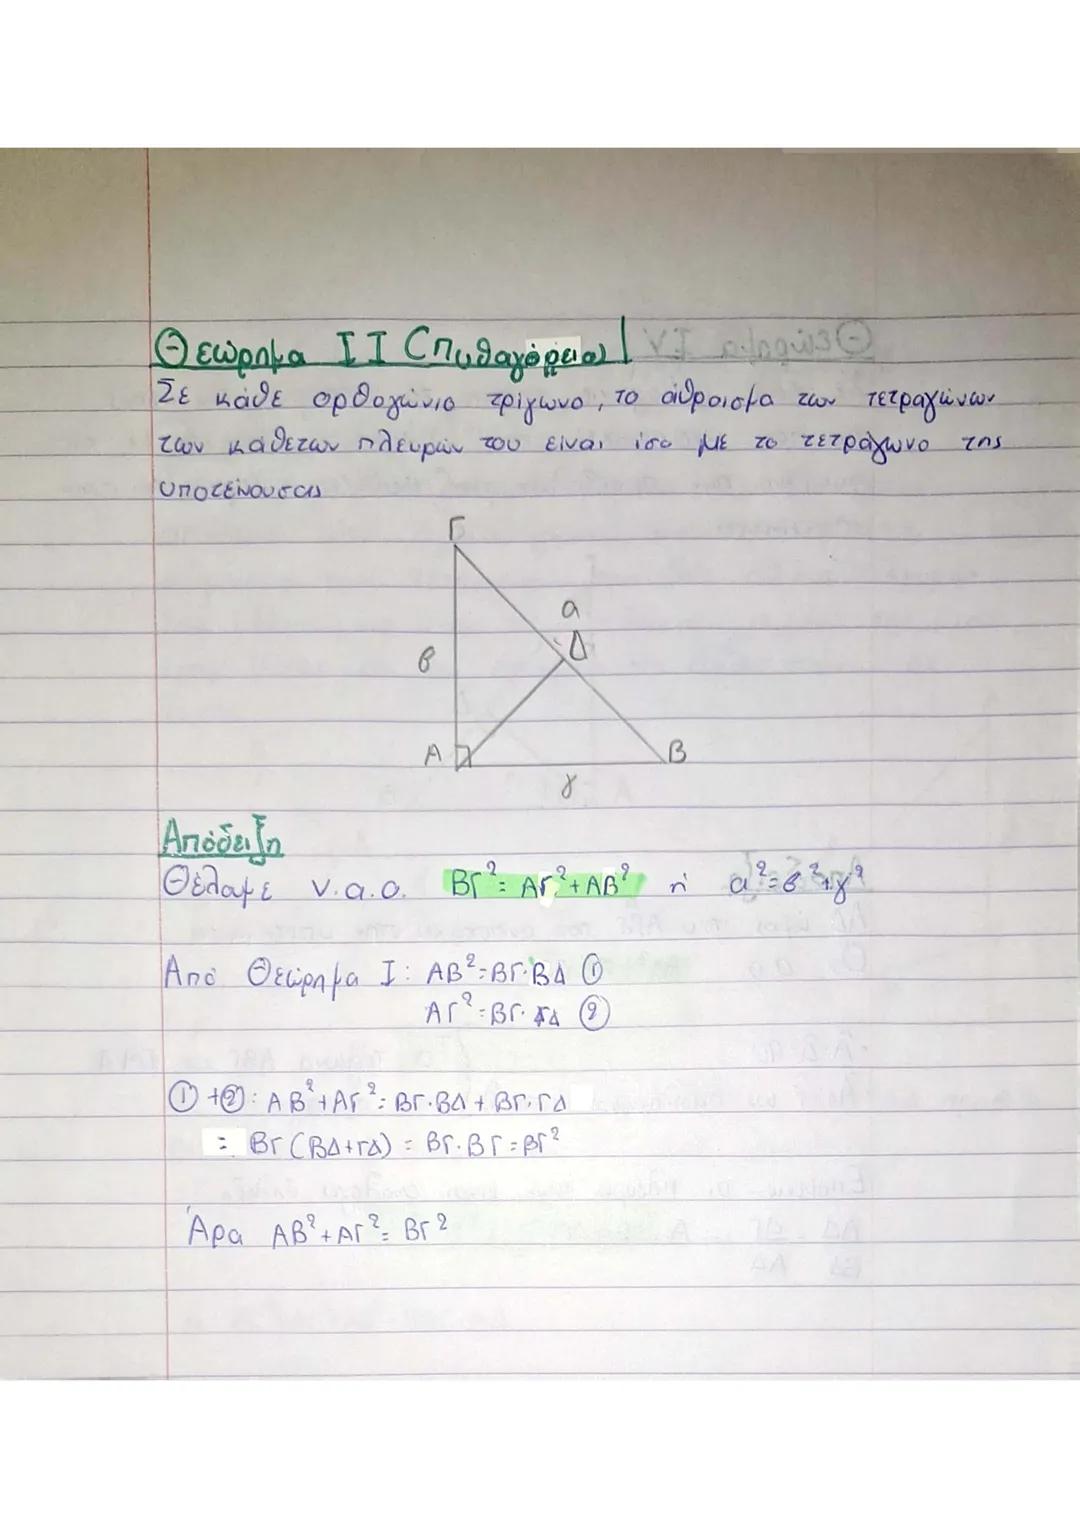 Θεώρημα ΙΙ (Πυθαγόρειο)
Σε κάθε ορθογώνιο τρίγωνο, το άθροισμα των τετραγώνων
των κάθετων πλευρών του είναι ίσο με το τετράγωνο της
υποτείνουσας
Γ
α
Δ
β
Α
Β
γ
Απόδειξη
Θέλαμε ν.α.ο. ΒΓ²= ΑΓ²+ΑΒ² ή α²=β²+γ²
Από Θεώρημα Ι: ΑΒ²=ΒΓ·ΒΔ ①
ΑΓ²=ΒΓ·ΓΔ ②
①+②: ΑΒ²+ΑΓ²= ΒΓ·ΒΔ+ΒΓ·ΓΔ
= ΒΓ(ΒΔ+ΓΔ) = ΒΓ·ΒΓ=ΒΓ²
Άρα ΑΒ²+ΑΓ²= ΒΓ²